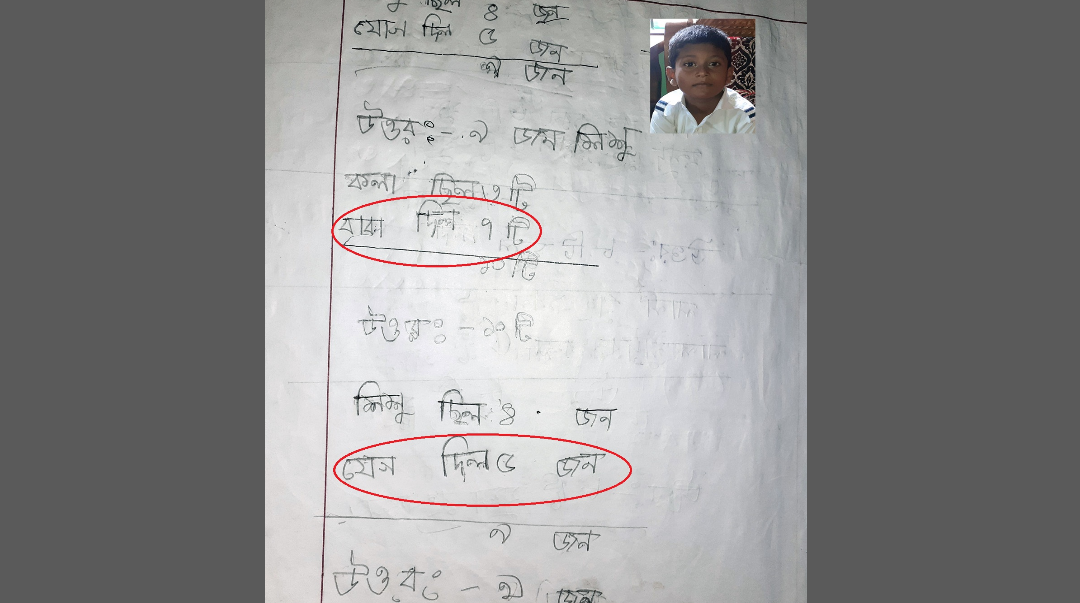 ছিল ৪ জন
যোগ দিল ৫ জন
৯ জন
উত্তর:- ৯ জন শিশু
কলা ছিল ৩ টি
দিল ৭ টি
১০ টি
উত্তর: - ১০ টি
শিশু ছিল ৪ জন
যোগ দিল ৫ জন
৯ জন
উত্তর: - ৯ জন